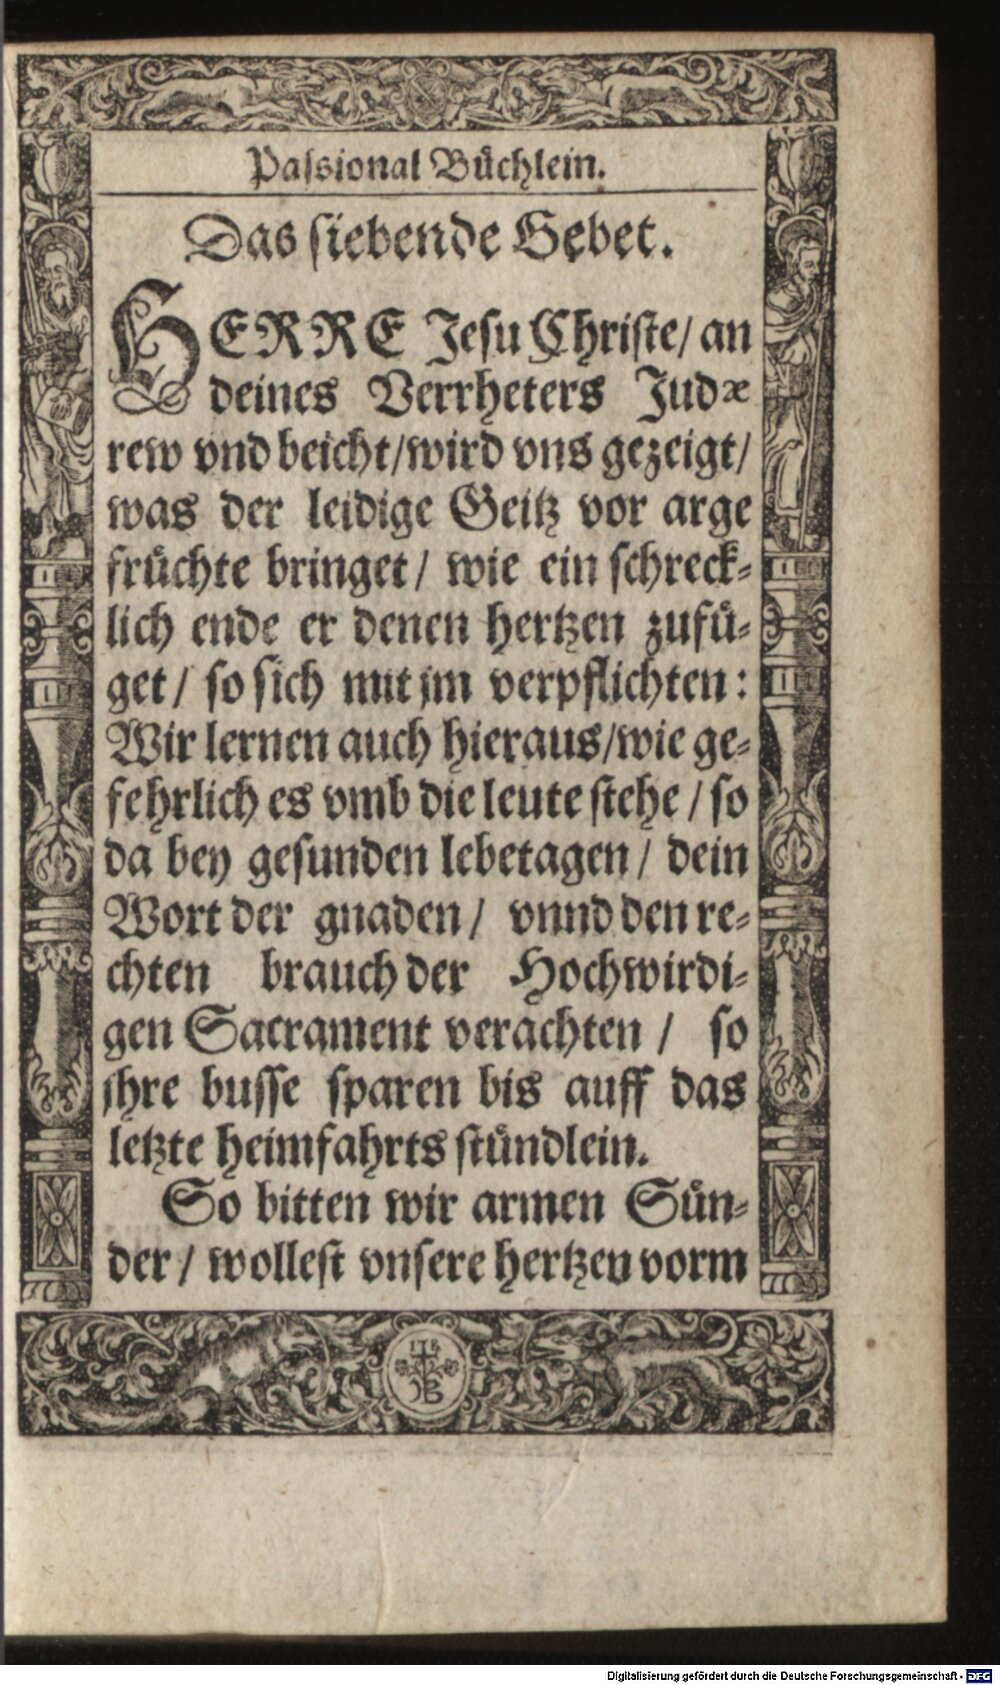 Passional Bůchlein.
Das siebende Gebet.
HERRE Jesu Christe/ an
deines Verrheters Judæ
rew vnd beicht/wird vns gezeigt/
was der leidige Geitz vor arge
frůchte bringet/ wie ein schreck-
lich ende er denen hertzen zufů-
get/ so sich mit jm verpflichten:
Wir lernen auch hieraus/wie ge-
fehrlich es vmb die leute stehe/ so
da bey gesunden lebetagen/ dein
Wort der gnaden/ vnnd den re-
chten brauch der Hochwirdi-
gen Sacrament verachten/ so
jhre busse sparen bis auff das
letzte heimfahrts stůndlein.
So bitten wir armen Sůn-
der/ wollest vnsere hertzen vorm
Digitalisierung gefördert durch die Deutsche Forschungsgemeinschaft - DFG